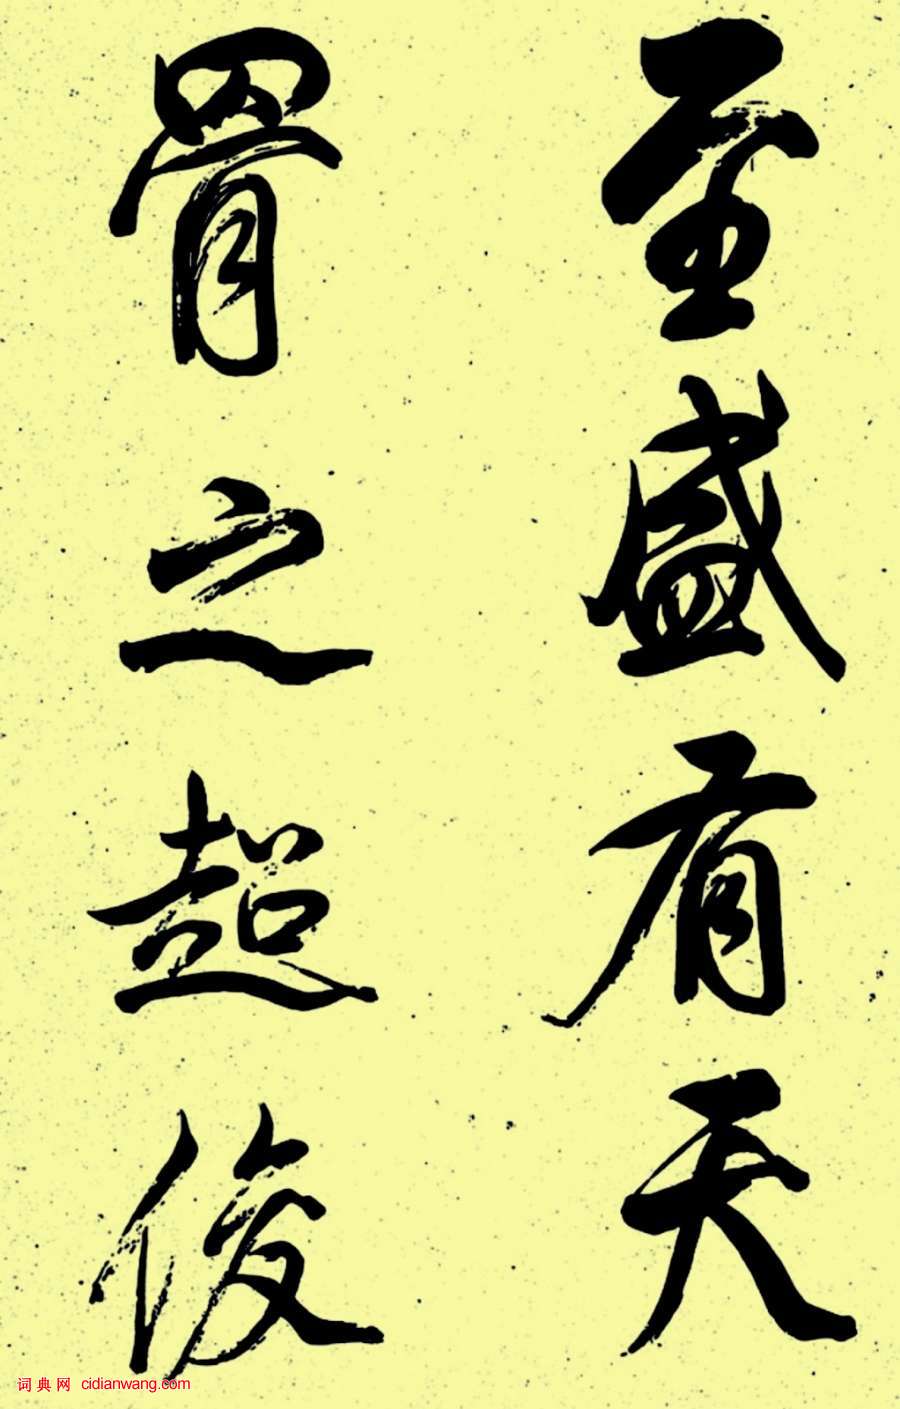 至盛有天
骨之超俊
词典网 cidianwang.com